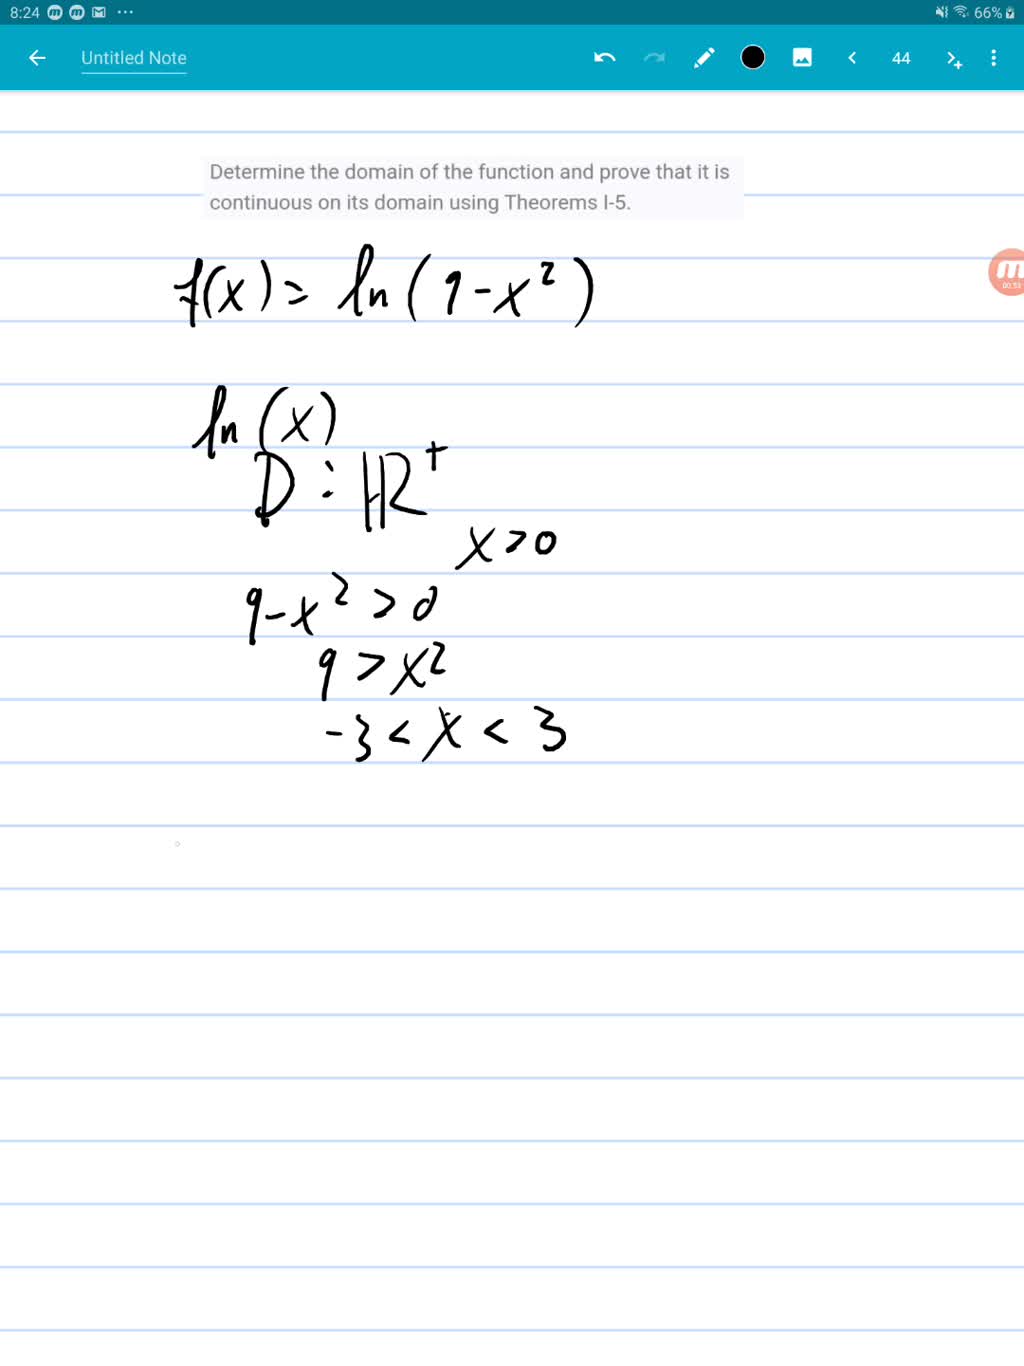 8:24
66%
Untitled Note
44
Determine the domain of the function and prove that it is
continuous on its domain using Theorems I-5.
f(x) = ln(9-x²)
00:53
ln(x)
D : ℝ⁺
x>0
9-x² > 0
9 > x²
-3 < x < 3